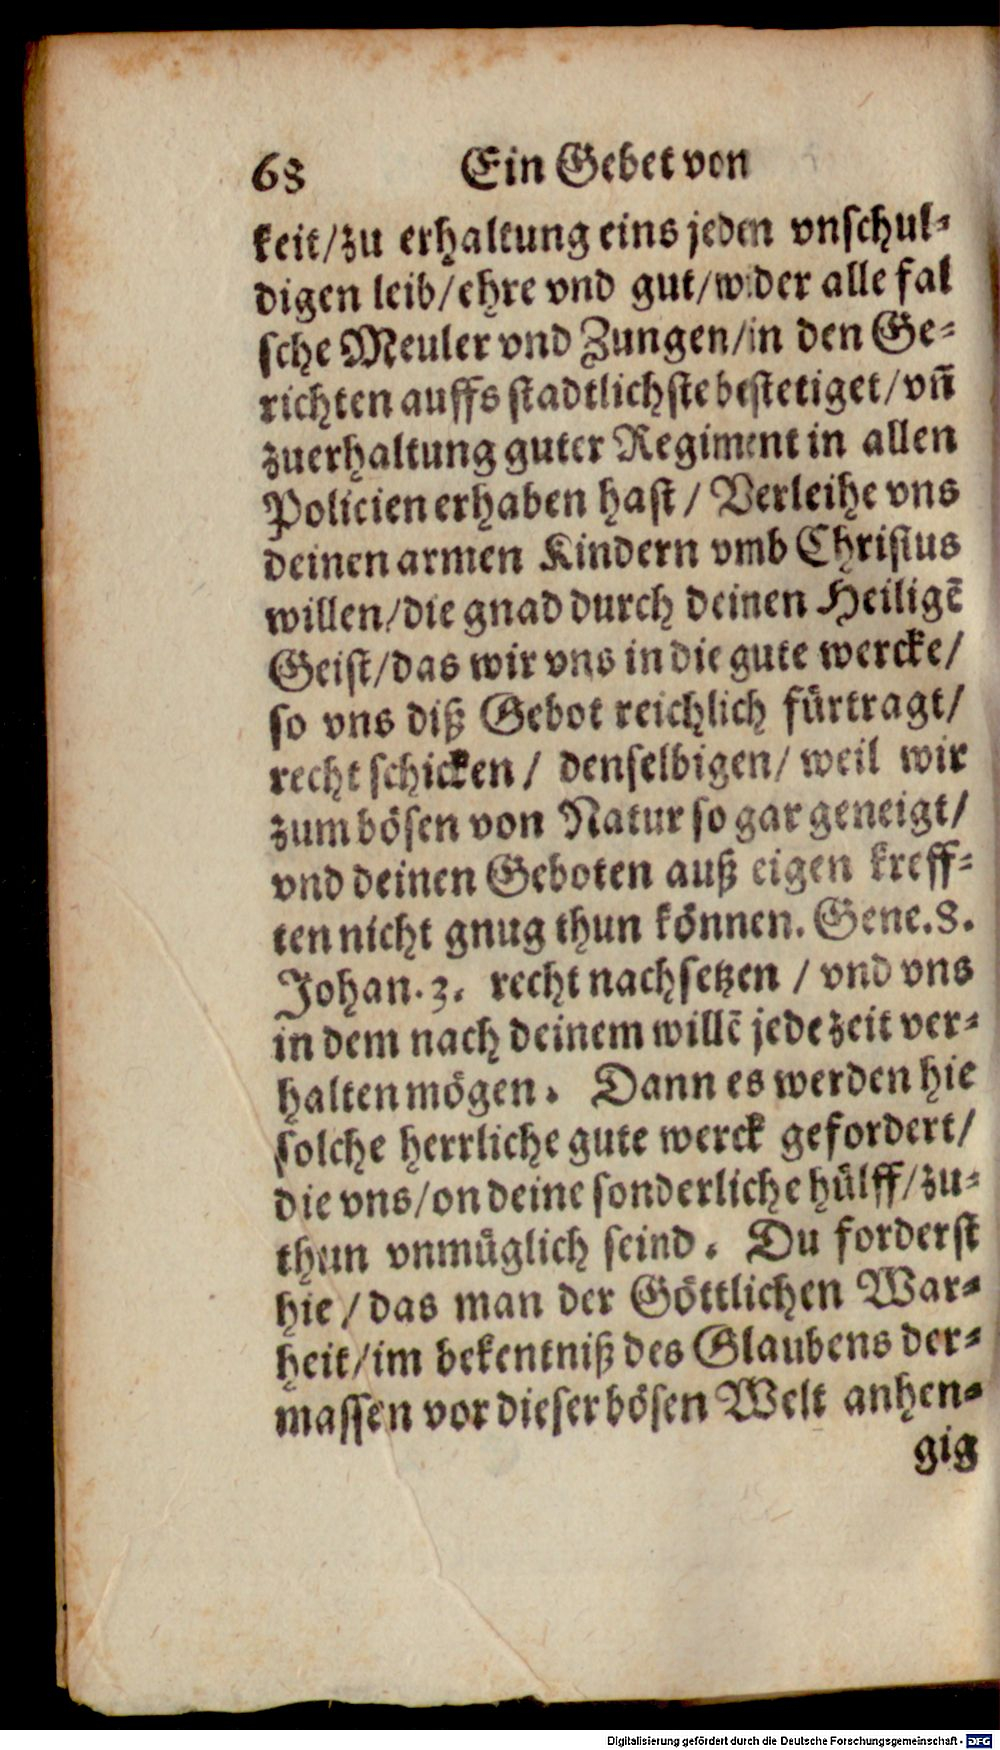 68 Ein Gebet von
keit/zu erhaltung eins jeden vnschul-
digen leib/ehre vnd gut/wider alle fal
sche Meuler vnd Zungen/in den Ge-
richten auffs stadtlichste bestetiget/vn̄
zuerhaltung guter Regiment in allen
Policien erhaben hast / Verleihe vns
deinen armen Kindern vmb Christus
willen/die gnad durch deinen Heiligē
Geist/das wir vns in die gute wercke/
so vns diß Gebot reichlich fürtragt/
recht schicken / denselbigen/ weil wir
zum bösen von Natur so gar geneigt/
vnd deinen Geboten auß eigen kreff-
ten nicht gnug thun können. Gene.8.
Johan.3. recht nachsetzen / vnd vns
in dem nach deinem willē jede zeit ver-
halten mögen. Dann es werden hie
solche herrliche gute werck gefordert/
die vns/on deine sonderliche hülff/zu-
thun vnmüglich seind. Du forderst
hie / das man der Göttlichen War-
heit/im bekentniß des Glaubens der-
massen vor dieser bösen Welt anhen-
gig
Digitalisierung gefördert durch die Deutsche Forschungsgemeinschaft - DFG